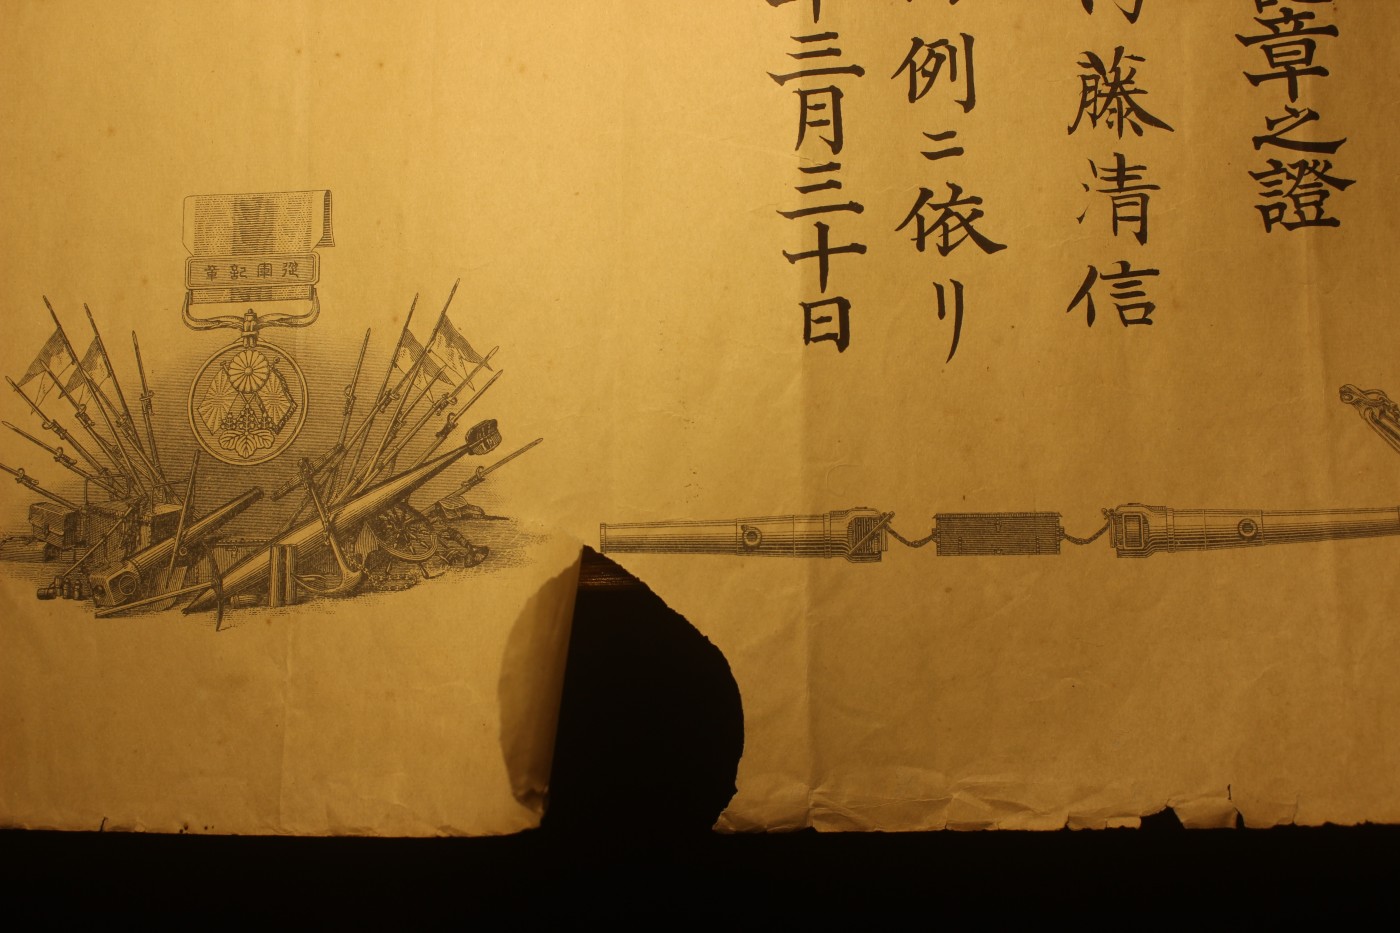 章之證
藤清信
例ニ依リ
三月三十日
從軍記章